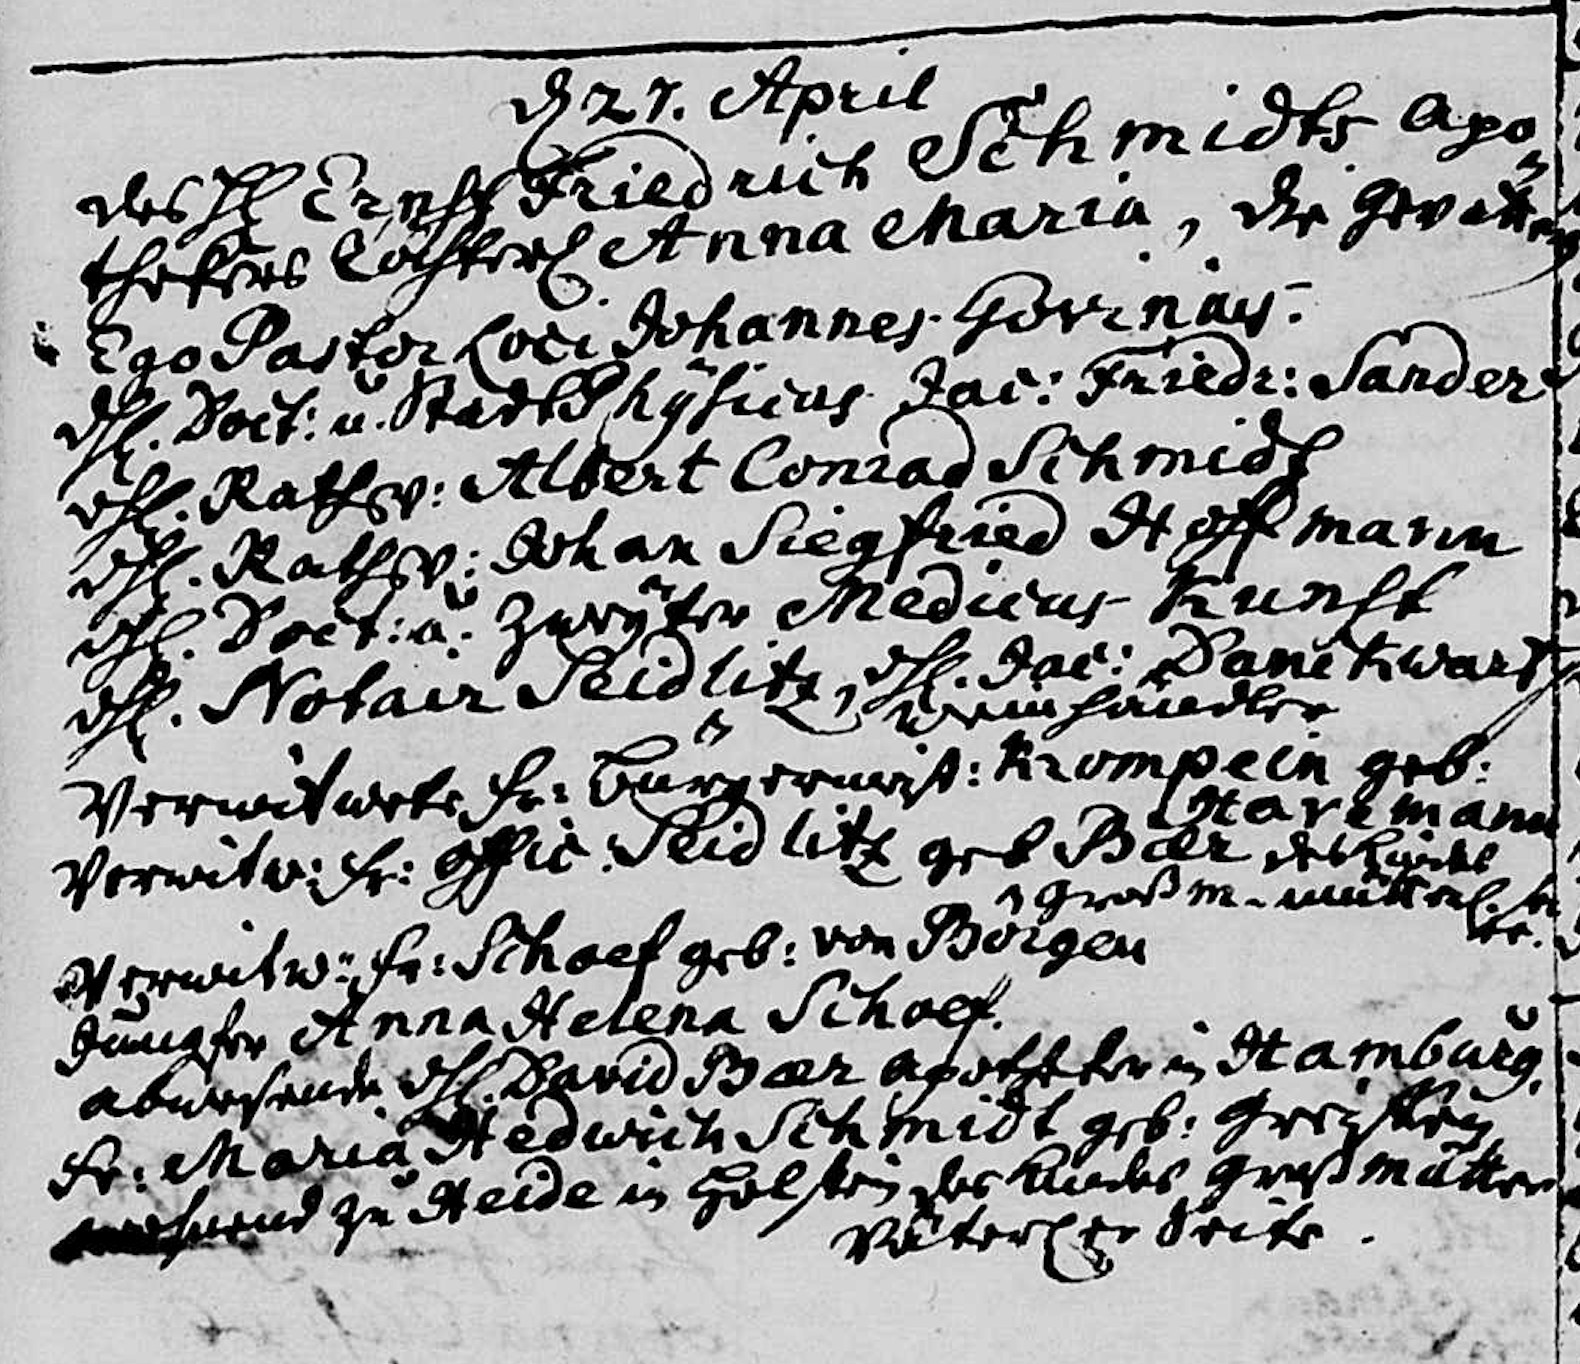 d 27. April
des H. Ernst Friedrich Schmidts Apo-
thekers Töchterl. Anna Maria, die Gevattern
Ego Pastor Loci Johannes Govinius.
d H. Doct: u. Stadt Physicus Jac: Friedr: Sander
d H. Rathsv: Albert Conrad Schmidt
d H. Rathsv: Johan Siegfried Hoffmann
d H. Doct: u. Zweyter Medicus Kunst
d H. Notair Seidlitz, d H. Jac: Danckwart
Weinhändler
Verwitwete Fr: Bürgermeist: Krompein geb:
Havemann
Verwitw: Fr: Offic. Seidlitz geb Bær des Kindes
Großm. mütterl. Sei
te.
Verwitw: Fr: Schoef geb: von Börgen
Jungfer Anna Helena Schoef.
abwesende d H. David Bær Apotheker in Hamburg,
Fr: Maria Hedwich Schmidt geb:
wohnend zu Heide in Holstein des Kindes Großmutter
väterlicher Seite.